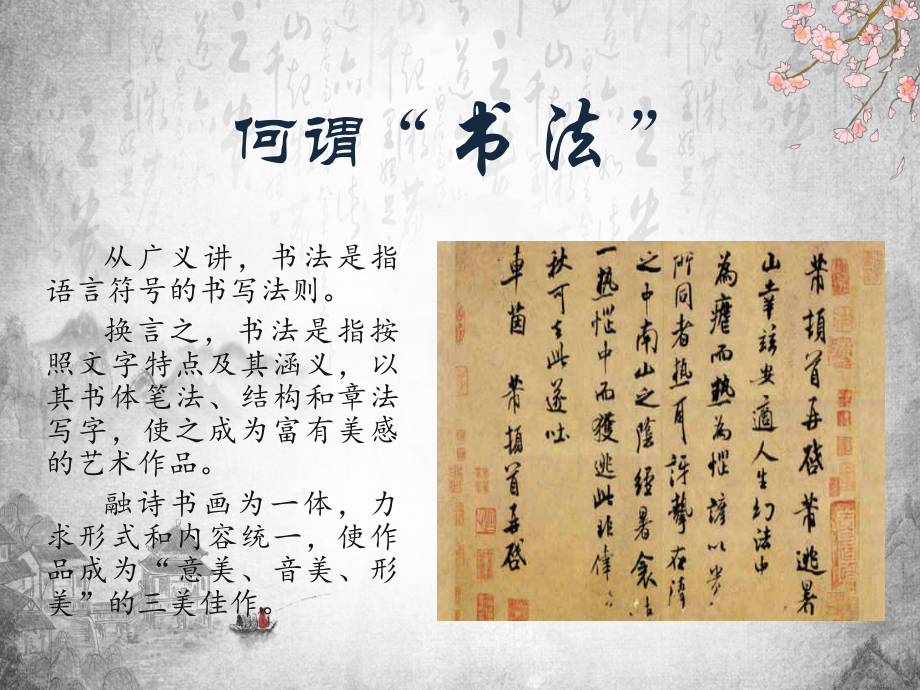 何谓“书法”
从广义讲，书法是指
语言符号的书写法则。
换言之，书法是指按
照文字特点及其涵义，以
其书体笔法、结构和章法
写字，使之成为富有美感
的艺术作品。
融诗书画为一体，力
求形式和内容统一，使作
品成为“意美、音美、形
美”的三美佳作。
芾頓首再啓芾逃暑
山幸兹安適人生幻法中
為瘧而熱為惱諺以貴
所同者熱耳訝摯在
之中南山之陰經暑衾
一熱惱中而獲逃此非偉
秋可去此遂吐
車茵 芾頓首再啓